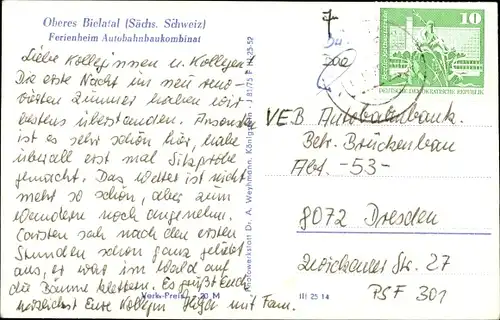 Oberes Bielatal (Sächs. Schweiz)
Ferienheim Autobahnbaukombinat
Liebe Kolleginnen u. Kollegen!
Die erste Nacht im neu reno-
vierten Zimmer haben wir
bestens überstanden. Ansonsten
ist es sehr schön hier, habe
überall erst mal Sitzprobe
gemacht. Das Wetter ist nicht
mehr so schön, aber zum
Wandern noch angenehm.
Carsten sah nach den ersten
Stunden schon ganz geliebt
aus, er war im Wald auf
die Bäume klettern. Es grüßt euch
herzlichst Eure Kollegin mit Fam.
Verk.-Preis: -,20 M
Fotowerkstatt Dr. A. Weyhmann, Königstein J 81/75 F III 25 52
III 25 14
10
DEUTSCHE DEMOKRATISCHE REPUBLIK
VEB Autobahnbank.
Betr. Brückenbau
Abt. -53-
8072 Dresden
Zwickauer Str. 27
PSF 301